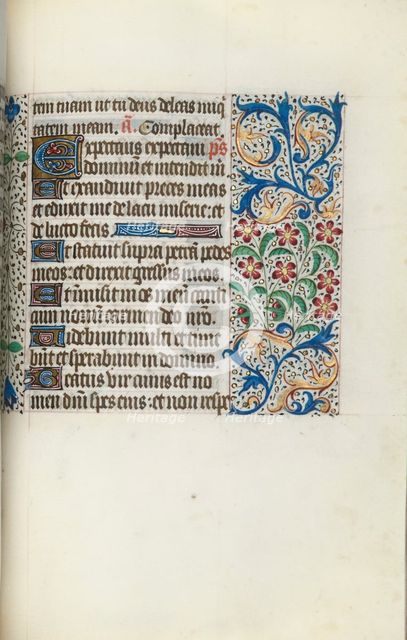 tem tuam ut tu deus deleas iniq
tatem meam. A. Complaceat
Expectans expectaui ps
dominum et intendit m
Et exaudiuit preces meas
et eduxit me de lacu miserie: et
de luto fecis
Et statuit supra petram pedes
meos: et direxit gressus meos
Et inmisit in os meum canti
cum nouum carmen deo nro
Uidebunt multi et time
bunt et sperabunt in domino
Beatus vir cuius est no
men dni spes eius: et non respe
Heritage Heritage